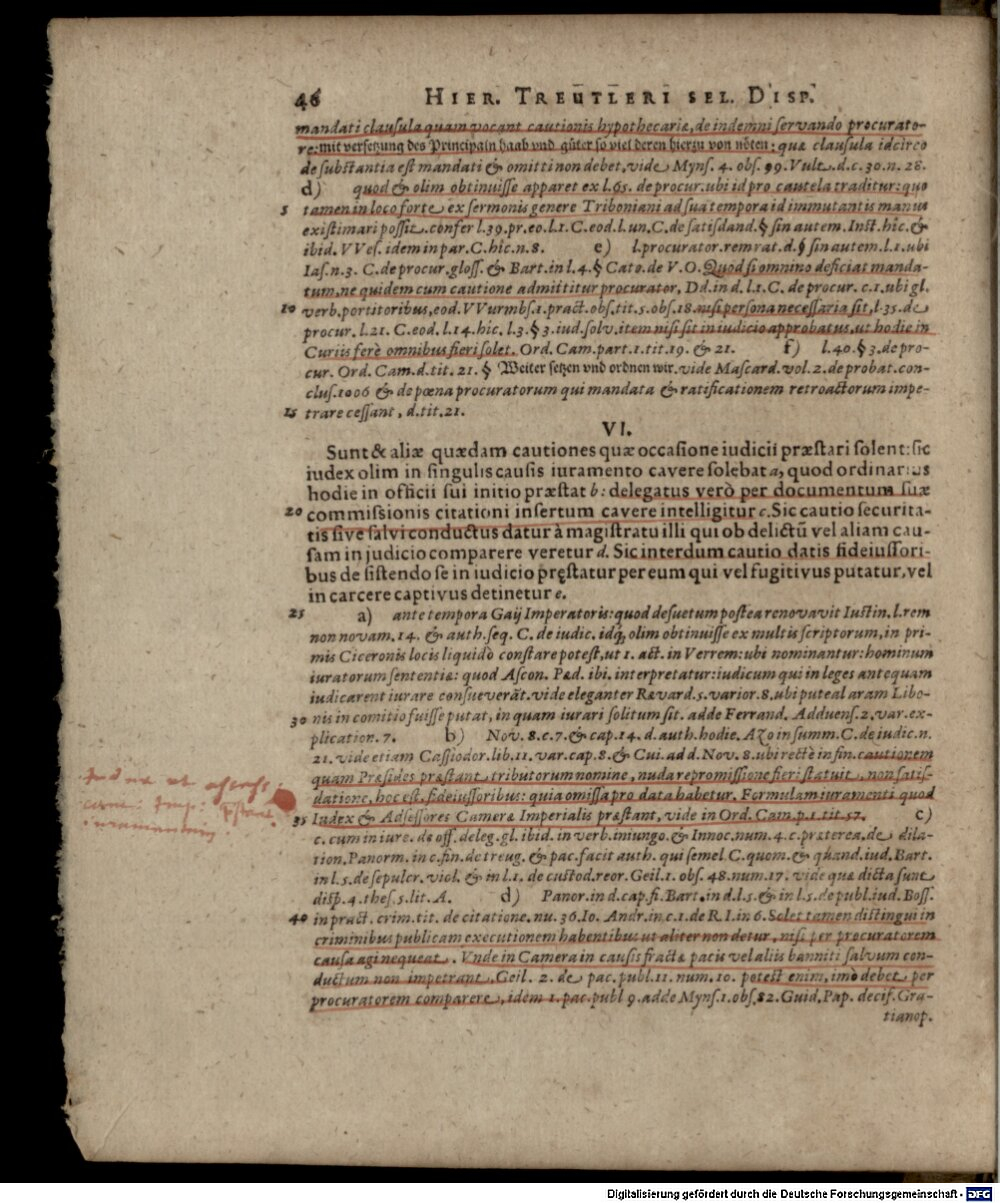 46 HIER. TREUTLERI SEL. DISP.
mandati clausula quam vocant cautionis hypothecariæ, de indemni servando procurato-
re: mit versetzung des Principaln haab vnd güter so viel deren hierzu von nöten: quæ clausula idcirco
de substantia est mandati & omitti non debet, vide Myns. 4. obs. 99. Vult. d.c. 30. n. 28.
d) quod & olim obtinuisse apparet ex l. 65. de procur. ubi id pro cautela traditur: quo
5 tamen in loco forte ex sermonis genere Triboniani ad sua tempora id immutantis manus
existimari possit. confer l. 39. pr. eo. l. 1. C. eod. l. un. C. de satisdand. § sin autem. Inst. hîc. &
ibid. VVes. idem in par. C. hîc. n. 8. e) l. procurator. rem rat. d. § sin autem. l. 1. ubi
Ias. n. 3. C. de procur. gloss. & Bart. in l. 4. § Cato. de V. O. Quod si omnino deficiat manda-
tum, ne quidem cum cautione admittitur procurator, Dd. in d. l. 1. C. de procur. c. 1. ubi gl.
10 verb. portitoribus, eod. VVurmbs. 1. pract. obs. tit. 5. obs. 18. nisi persona necessaria sit, l. 35. de
procur. l. 21. C. eod. l. 14. hic. l. 3. § 3. iud. solv. item nisi sit in iudicio approbatus, ut hodie in
Curiis ferè omnibus fieri solet. Ord. Cam. part. 1. tit. 19. & 21. f) l. 40. § 3. de pro-
cur. Ord. Cam. d. tit. 21. § Weiter setzen vnd ordnen wir. vide Mascard. vol. 2. de probat. con-
clus. 1006 & de pœna procuratorum qui mandata & ratificationem retroactorum impe-
15 trare cessant, d. tit. 21.
VI.
Sunt & aliæ quædam cautiones quæ occasione iudicii præstari solent: sic
iudex olim in singulis causis iuramento cavere solebat a, quod ordinarius
hodie in officii sui initio præstat b: delegatus verò per documentum suæ
20 commissionis citationi insertum cavere intelligitur c. Sic cautio securita-
tis sive salvi conductus datur à magistratu illi qui ob delictũ vel aliam cau-
sam in judicio comparere veretur d. Sic interdum cautio datis fideiussori-
bus de sistendo se in iudicio pręstatur per eum qui vel fugitivus putatur, vel
in carcere captivus detinetur e.
25 a) ante tempora Gaij Imperatoris: quod desuetum postea renovavit Iustin. l. rem
non novam. 14. & auth. seq. C. de iudic. idq́; olim obtinuisse ex multis scriptorum, in pri-
mis Ciceronis locis liquidò constare potest, ut 1. act. in Verrem: ubi nominantur: hominum
iuratorum sententiæ: quod Ascon. Pæd. ibi. interpretatur: iudicum qui in leges antequam
iudicarent iurare consueverãt. vide eleganter Rævard. 5. varior. 8. ubi puteal aram Libo-
30 nis in comitio fuisse putat, in quam iurari solitum sit. adde Ferrand. Adduens. 2. var. ex-
plication. 7. b) Nov. 8. c. 7. & cap. 14. d. auth. hodie. Azo in summ. C. de iudic. n.
21. vide etiam Cassiodor. lib. 11. var. cap. 8. & Cui. ad d. Nov. 8. ubi rectè in fin. cautionem
quam Præsides præstant tributorum nomine, nuda repromissione fieri statuit, non satis-
datione, hoc est, fideiussoribus: quia omissa pro data habetur. Formulam iuramenti quod
35 Iudex & Adsessores Cameræ Imperialis præstant, vide in Ord. Cam. p. 1. tit. 57. c)
c. cum in iure. de off. deleg. gl. ibid. in verb. iniungo. & Innoc. num. 4. c. præterea. de dila-
tion. Panorm. in c. fin. de treug. & pac. facit auth. qui semel C. quom. & quand. iud. Bart.
in l. 5. de sepulcr. viol. & in l. 1. de custod. reor. Geil. 1. obs. 48. num. 17. vide quæ dicta sunt
disp. 4. thes. 5. lit. A. d) Panor. in d. cap. fi. Bart. in d. l. 5. & in l. 5. de publ. iud. Boss.
40 in pract. crim. tit. de citatione. nu. 36. Io. Andr. in c. 1. de R. I. in 6. Solet tamen distingui in
criminibus publicam executionem habentibus ut aliter non detur, nisi per procuratorem
causa agi nequeat. Vnde in Camera in causis fractæ pacis vel aliis banniti salvum con-
ductum non impetrant, Geil. 2. de pac. publ. 11. num. 10. potest enim, imò debet per
procuratorem comparere, idem 1. pac. publ 9. adde Myns. 1. obs. 82. Guid. Pap. decis. Gra-
tianop.
Iudex et assess.
Imp:
iuramentum
Digitalisierung gefördert durch die Deutsche Forschungsgemeinschaft - DFG